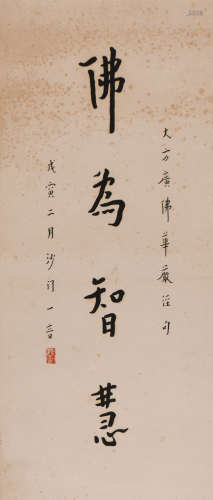 大方廣佛華嚴經句
佛為智慧
戊寅二月沙門一音